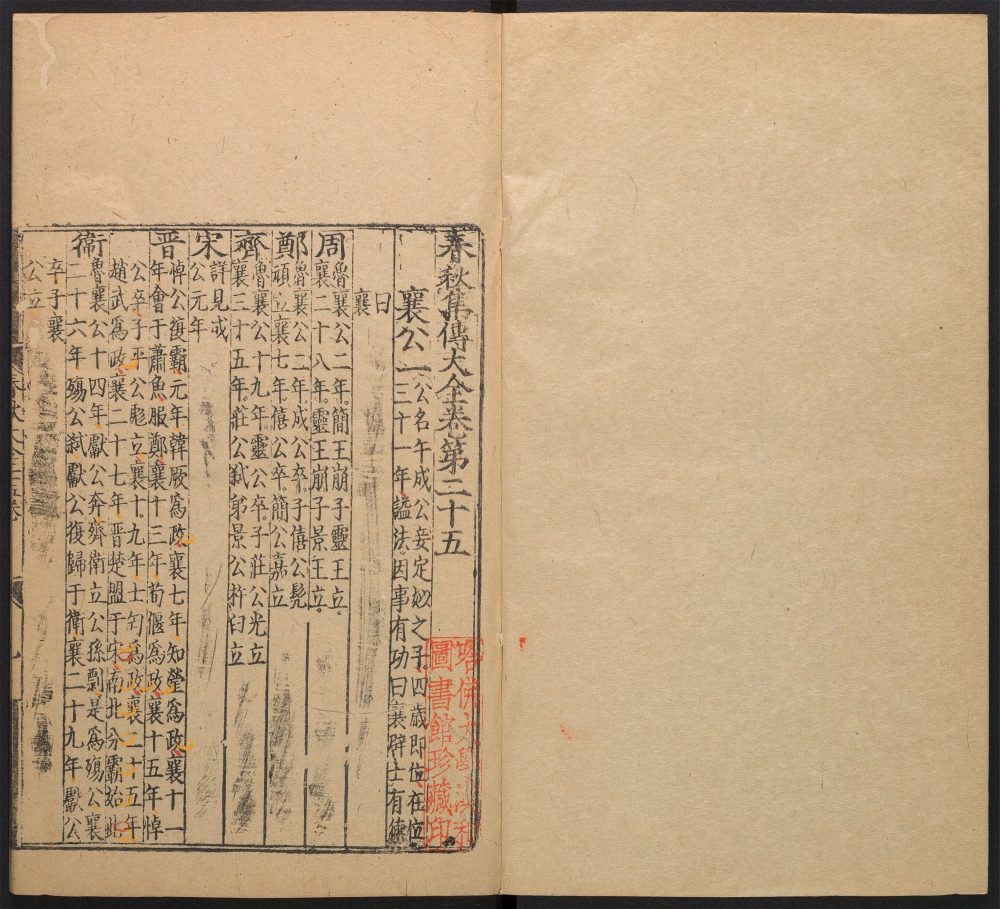 春秋集傳大全卷第二十五
襄公一
公名午成公妾定姒之子四歲即位在位
三十一年謚法因事有功曰襄辟土有德
曰
襄
周
魯襄公二年簡王崩子靈王立
襄二十八年靈王崩子景王立
鄭
魯襄公二年成公卒子僖公髠
頑立襄七年僖公卒簡公嘉立
齊
魯襄公十九年靈公卒子莊公光立
襄二十五年莊公弑弟景公杵臼立
宋
詳見成
公元年
晉
悼公復霸元年韓厥爲政襄七年知罃爲政襄十一
年會于蕭魚服鄭襄十三年荀偃爲政襄十五年悼
公卒子平公彪立襄十九年士匄爲政襄二十五年
趙武爲政襄二十七年晉楚盟于宋南北分霸始此
衞
魯襄公十四年獻公奔齊衛立公孫剽是爲殤公襄
二十六年殤公弑獻公復歸于衛襄二十九年獻公
卒子襄
公立
圖書館珍藏印